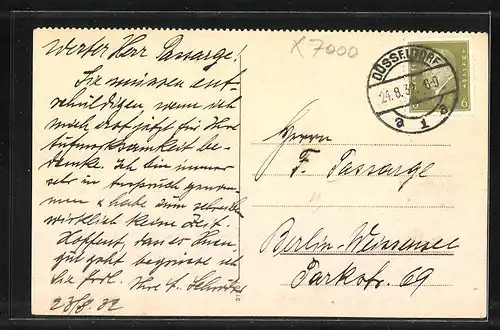 Werter Herr Passarge!
Sie müssen ent-
schuldigen, wenn ich
mich erst jetzt für Ihre
Aufmerksamkeit be-
danke. Ich bin immer
sehr in Anspruch genom-
men & habe zum schreiben
wirklich keine Zeit.
Hoffent, dass es Ihnen
gut geht begrüsse ich
Sie frdl. Ihre
23/8. 32
X 7000
DÜSSELDORF
24.8.32
a 1 a
6
Herrn
F. Passarge
Berlin-Weissensee
Parkstr. 69